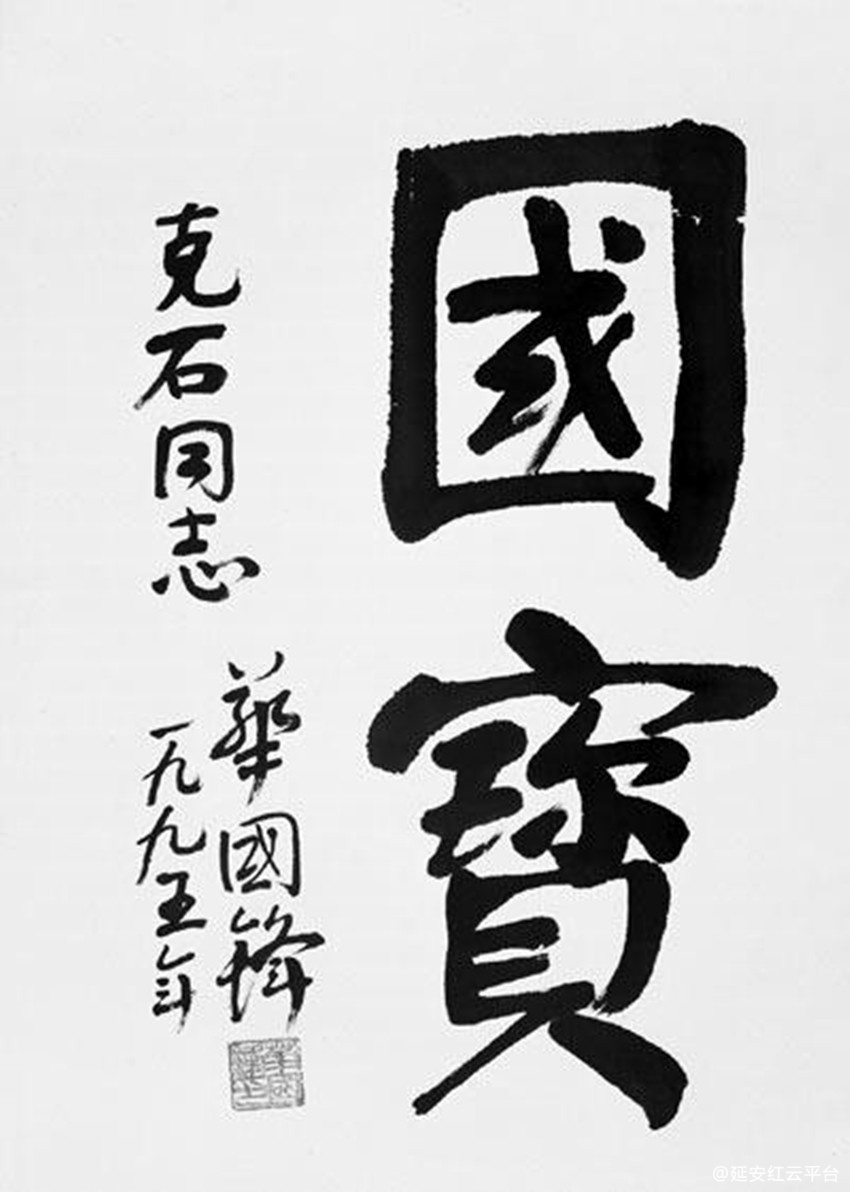 國寶
克石同志
華國鋒
一九九五年
@延安红云平台